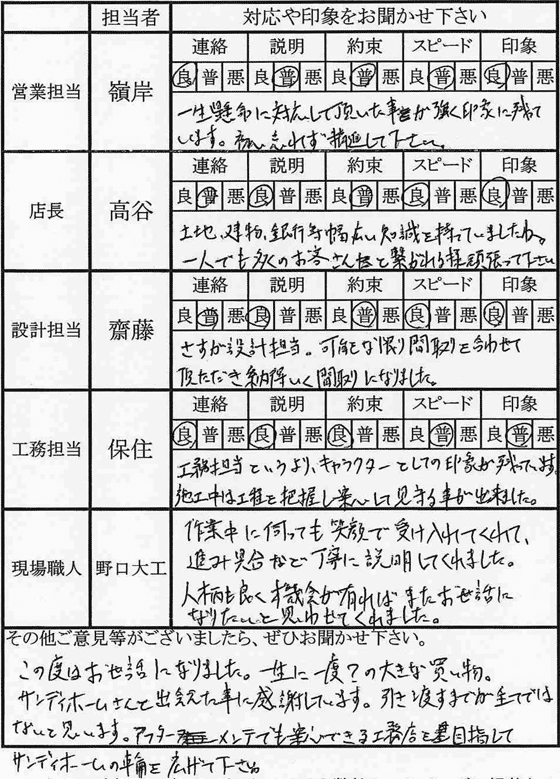 担当者 対応や印象をお聞かせ下さい
営業担当 嶺岸
連絡 説明 約束 スピード 印象
良 普 悪 良 普 悪 良 普 悪 良 普 悪 良 普 悪
一生懸命に対応して頂いた事が強く印象に残って
います。初心忘れず邁進して下さい。
店長 高谷
連絡 説明 約束 スピード 印象
良 普 悪 良 普 悪 良 普 悪 良 普 悪 良 普 悪
土地、建物、銀行等幅広い知識を持っていましたね。
一人でも多くのお客さん達と繋がれる様頑張って下さい
設計担当 齋藤
連絡 説明 約束 スピード 印象
良 普 悪 良 普 悪 良 普 悪 良 普 悪 良 普 悪
さすが設計担当。可能な限り間取りを合わせて
頂ただき納得いく間取りになりました。
工務担当 保住
連絡 説明 約束 スピード 印象
良 普 悪 良 普 悪 良 普 悪 良 普 悪 良 普 悪
工務担当というより、キャラクターとしての印象が残っています。
施工中は工程を把握し安心して見守る事が出来ました。
現場職人 野口大工
作業中に伺っても笑顔で受け入れてくれて、
進み具合など丁寧に説明してくれました。
人柄も良く機会が有ればまたお世話に
なりたいと思わせてくれました。
その他ご意見等がございましたら、ぜひお聞かせ下さい。
この度はお世話になりました。一生に一度?の大きな買い物。
サンディホームさんと出会えた事に感謝しています。引き渡すまでが全てでは
ないと思います。アフターメンテでも安心できる工務店を目指して
サンディホームの輪を広げて下さい。